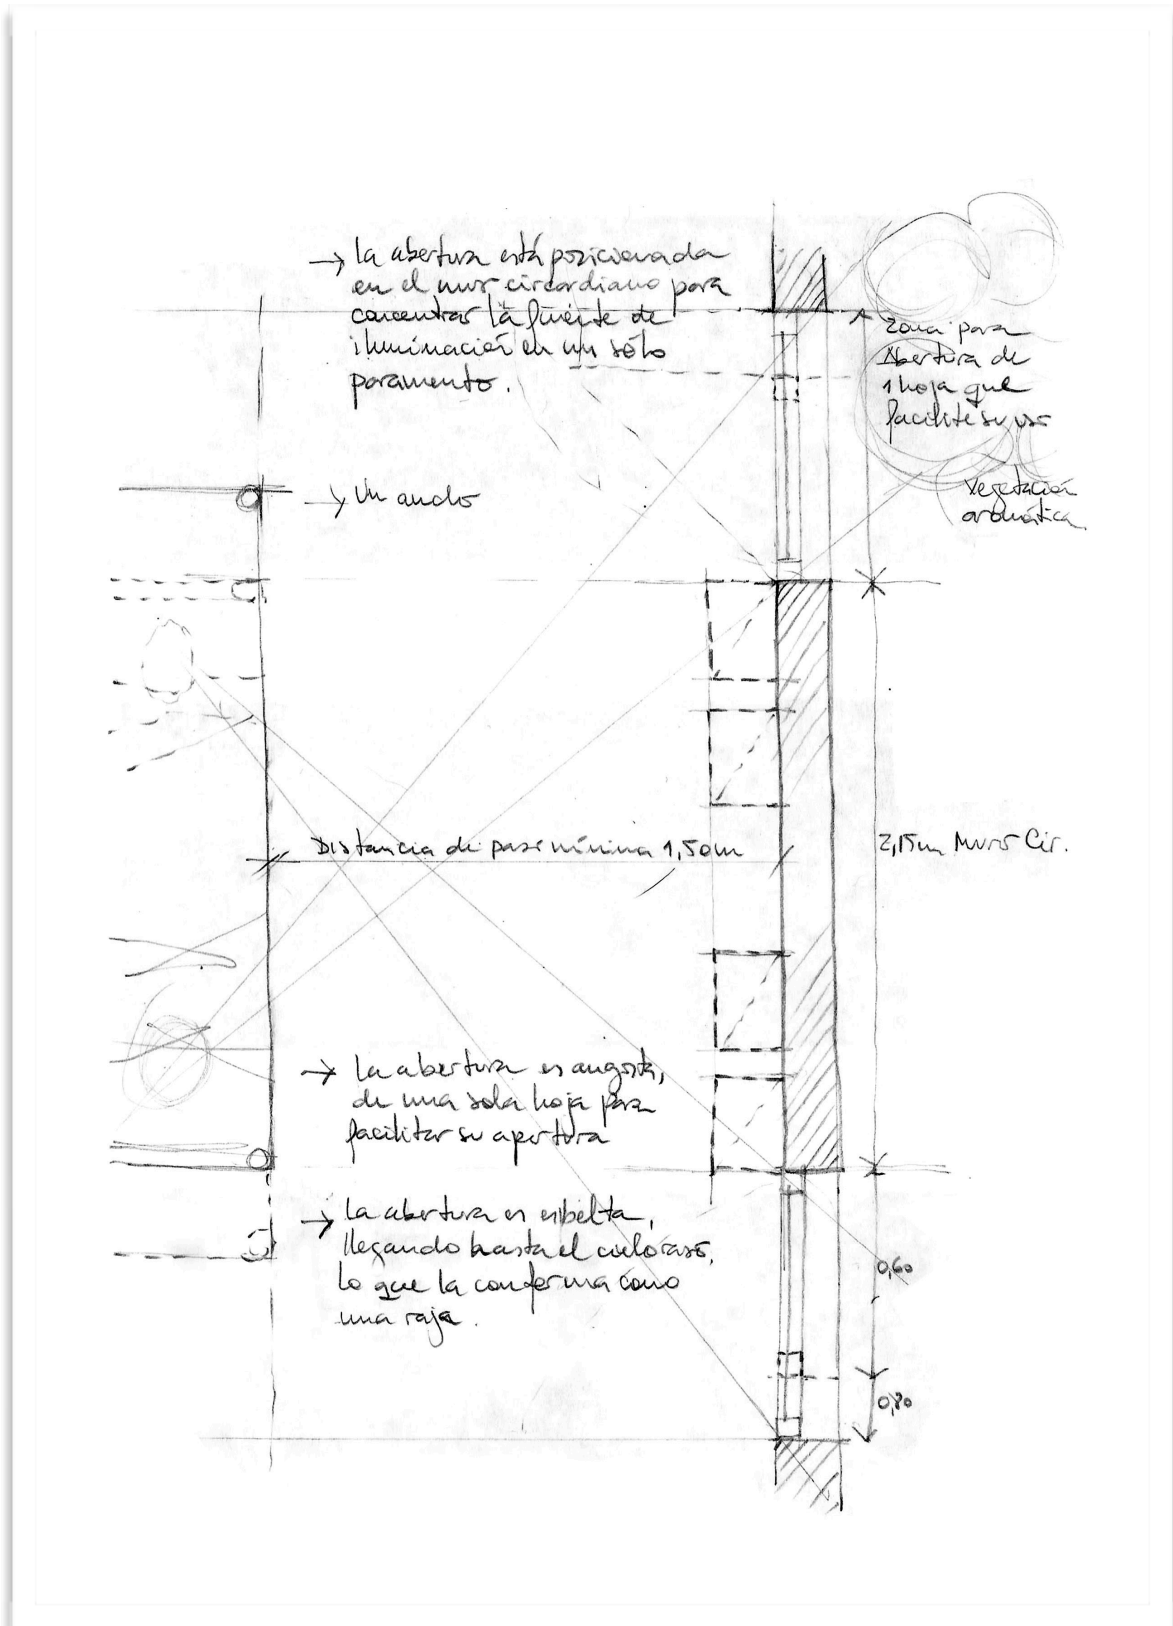 → La abertura está posicionada
en el muro circardiano para
concentrar la fuente de
iluminación en un sólo
paramento.
Zona para
Abertura de
1 hoja que
facilite su uso
→ Un ancho
Vegetación
aromática
Distancia de paso mínima 1,50m
2,15m Muro Cir.
→ La abertura es angosta,
de una sola hoja para
facilitar su apertura
→ La abertura es esbelta,
llegando hasta el cieloraso,
lo que la conforma como
una raja.
0,60